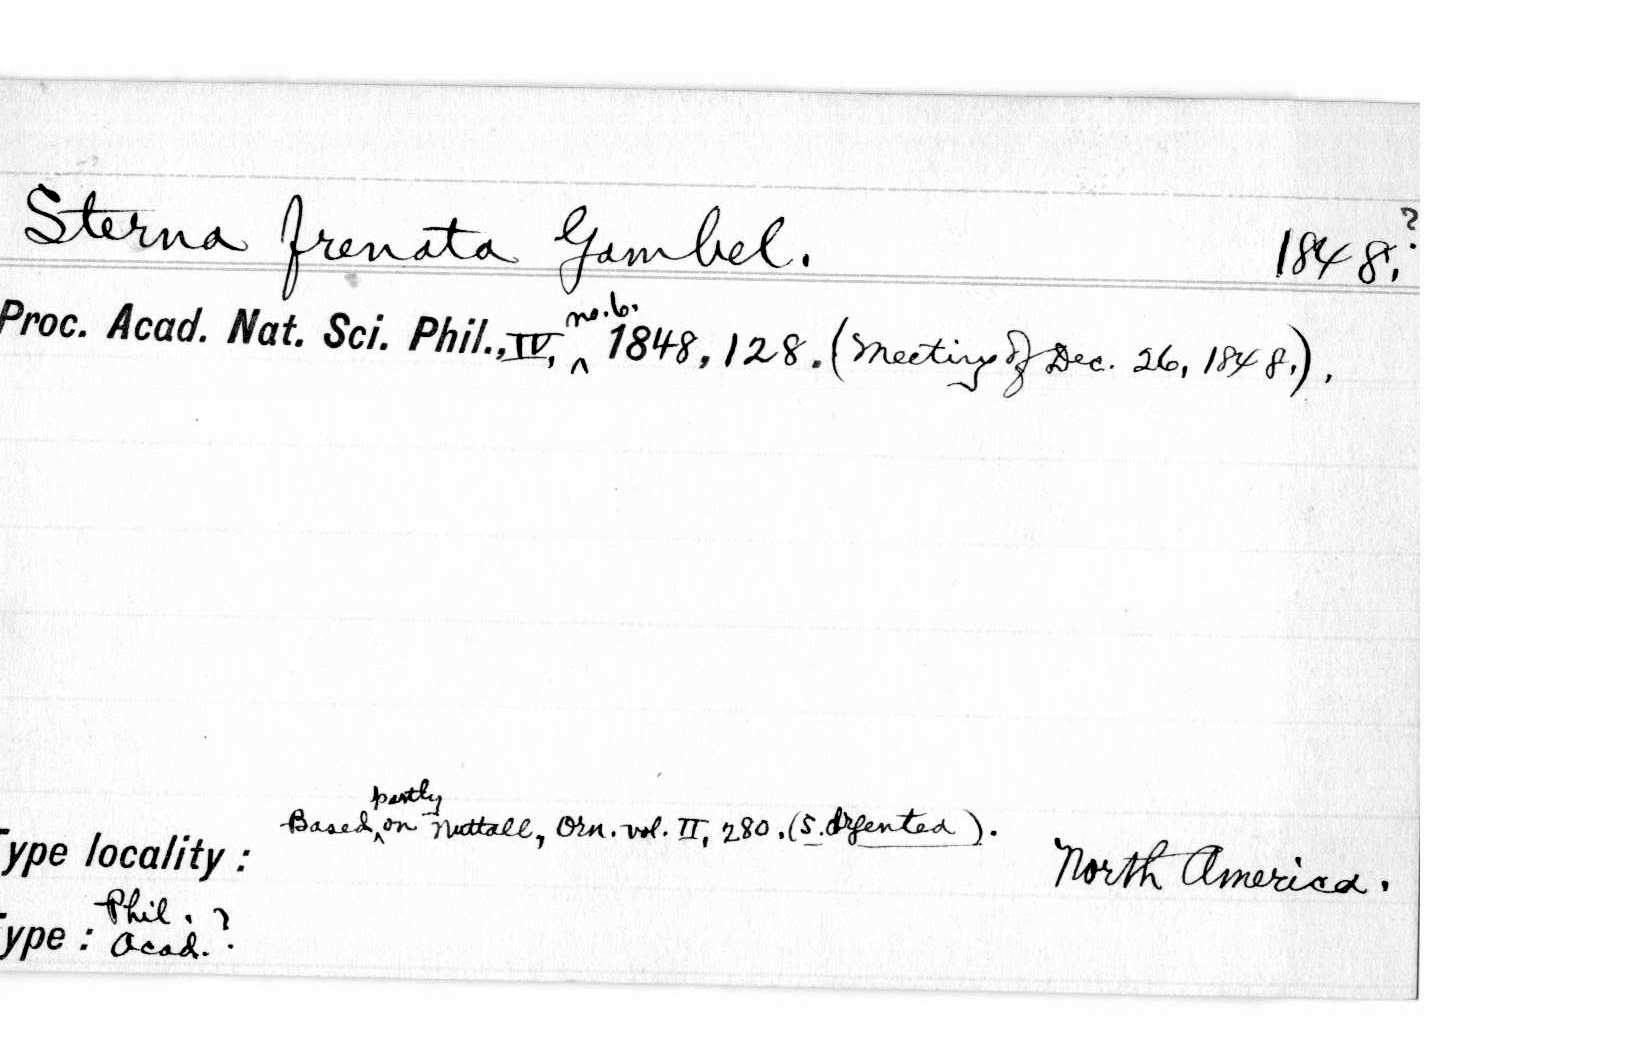 Sterna frenata Gambel. 1848.?
Proc. Acad. Nat. Sci. Phil., IV, ^ no. 6. 1848, 128. (Meeting of Dec. 26, 1848.).
Based ^ partly on Nuttall, Orn. vol. II, 280. (S. argentea).
Type locality: North America.
Type: Phil. Acad.?